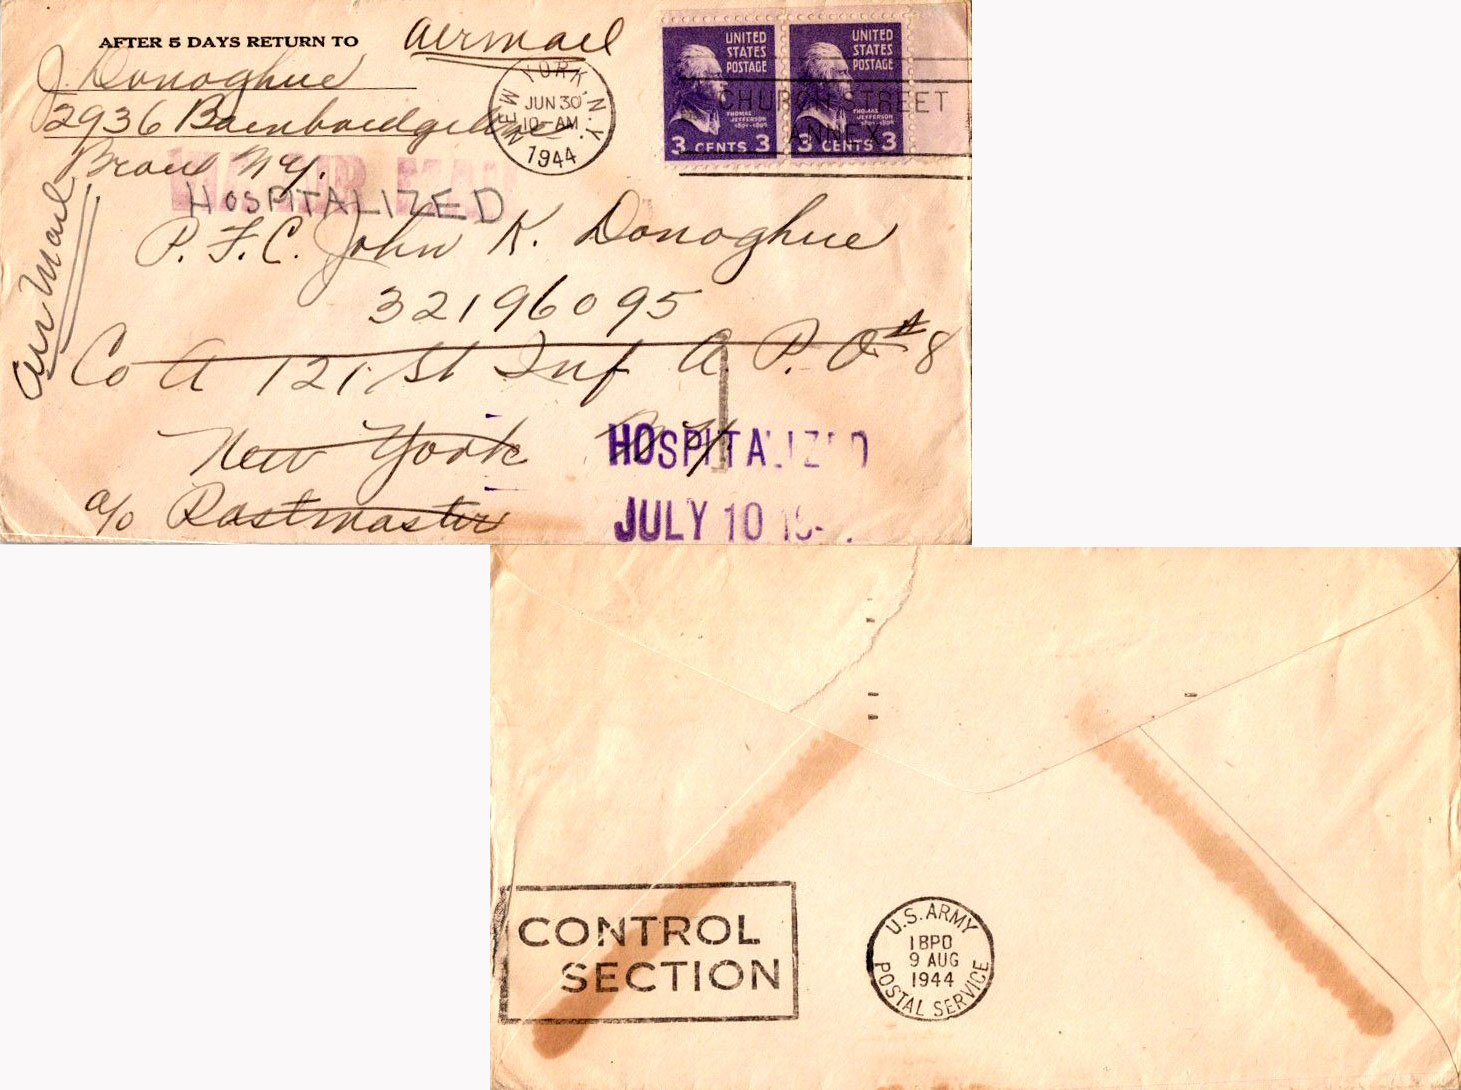 AFTER 5 DAYS RETURN TO
Airmail
J. Donoghue
2936 Bainbridge Ave
Bronx N.Y.
NEW YORK, N.Y.
JUN 30
10-AM
1944
UNITED
STATES
POSTAGE
THOMAS
JEFFERSON
1801-1809
3 CENTS 3
UNITED
STATES
POSTAGE
THOMAS
JEFFERSON
1801-1809
3 CENTS 3
CHURCH STREET
ANNEX
VIA AIR MAIL
HOSPITALIZED
Air Mail
P.F.C. John K. Donoghue
32196095
Co A 121 St Inf A.P.O. # 8
New York N.Y.
c/o Postmaster
HOSPITALIZED
JULY 10
CONTROL
SECTION
U.S. ARMY
1BPO
9 AUG
1944
POSTAL SERVICE